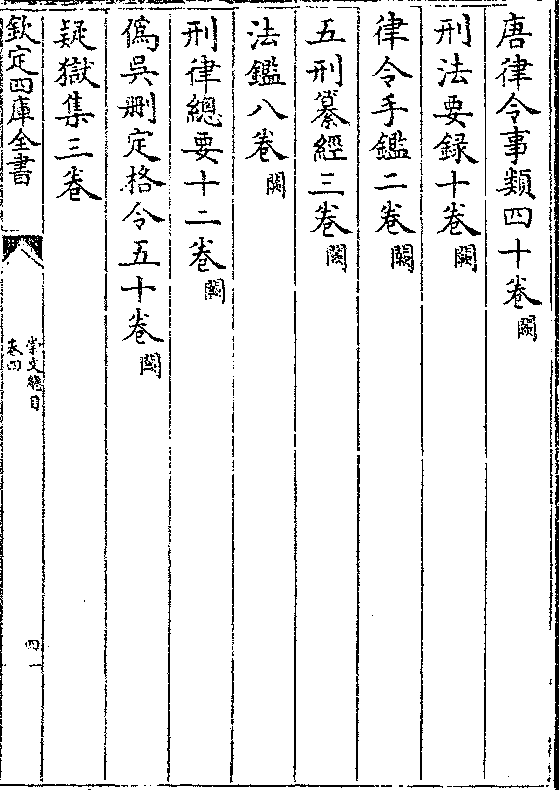 唐律令事類四十卷闕
刑法要録十卷闕
律令手鑑二卷闕
五刑纂經三卷闕
法鑑八卷闕
刑律總要十二卷闕
僞吳刪定格令五十卷闕
疑獄集三卷
欽定四庫全書
崇文總目
卷四
四一